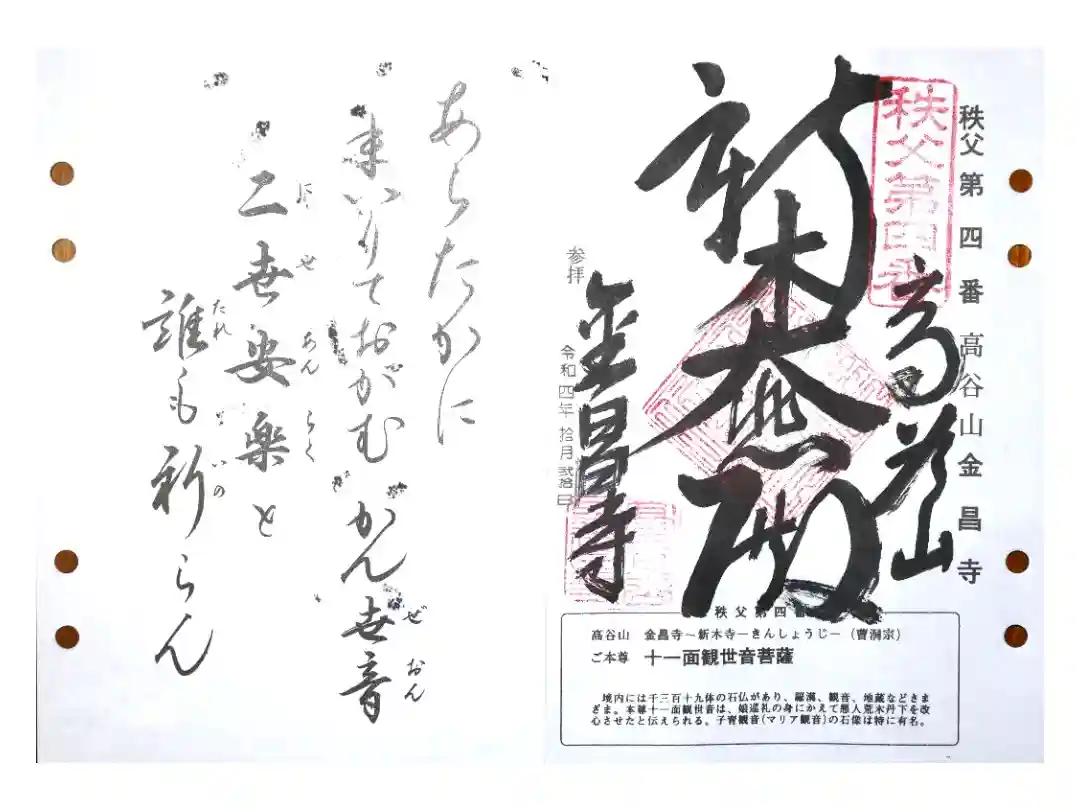 秩父第四番 高谷山 金昌寺
秩父第四番
高谷山
新木大悲殿
金昌寺
参拝
令和四年 拾月 弐拾日
秩父第四番
高谷山 金昌寺−新木寺−きんしょうじ−(曹洞宗)
ご本尊 十一面観世音菩薩
境内には千三百十九体の石仏があり、羅漢、観音、地蔵などさま
ざま。本尊十一面観世音は、娘巡礼の身にかえて悪人荒木丹下を改
心させたと伝えられる。子育観音(マリア観音)の石像は特に有名。
あらたかに
まいりておがむ かん世音
ぜおん
二世安楽と
にせあんらく
誰も祈らん
たれ いの